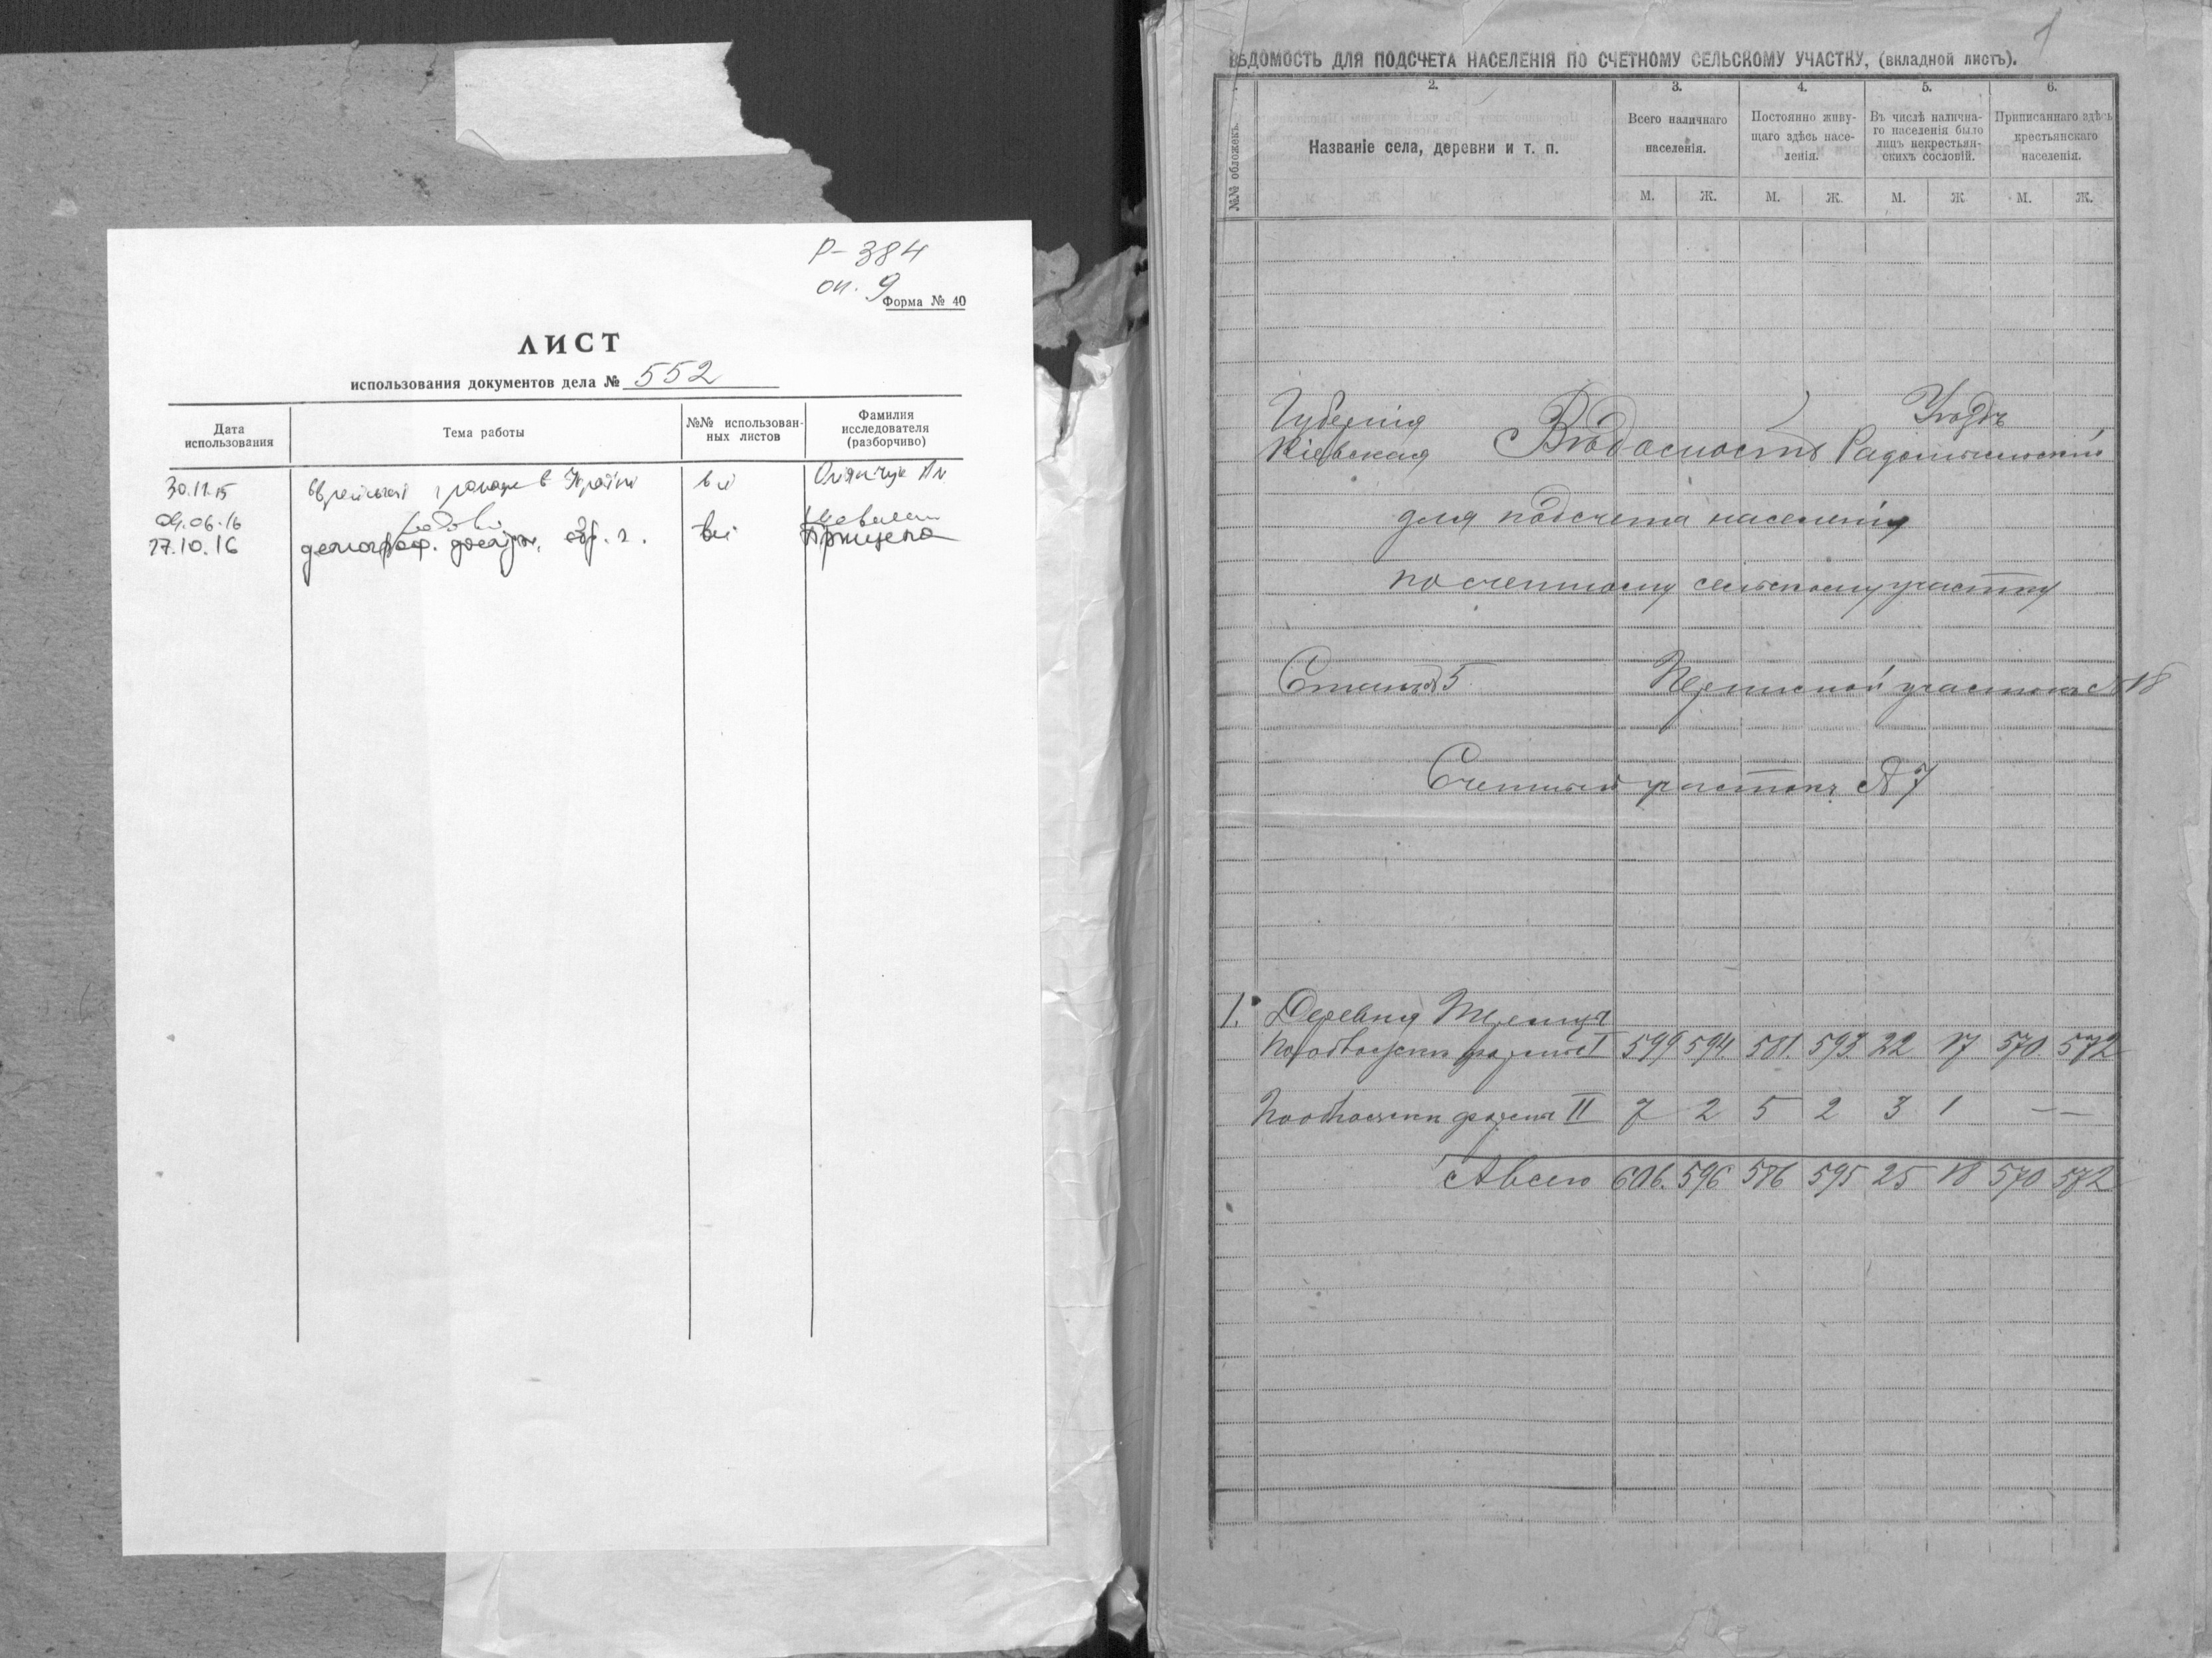 Р-384
оп. 9
Форма № 40
ЛИСТ
использования документов дела № 552
Дата использования
Тема работы
№№ использован-ных листов
Фамилия исследователя (разборчиво)
30.11.15 в Україні всі
04.06.16
27.10.16 всі
1
ВѢДОМОСТЬ ДЛЯ ПОДСЧЕТА НАСЕЛЕНІЯ ПО СЧЕТНОМУ СЕЛЬСКОМУ УЧАСТКУ, (вкладной листъ).
2. 3. 4. 5. 6.
№№ обложекъ.
Названіе села, деревни и т. п.
Всего наличнаго населенія.
Постоянно живу-щаго здѣсь насе-ленія.
Въ числѣ налична-го населенія было лицъ некрестьян-скихъ сословій.
Приписаннаго здѣсь крестьянскаго населенія.
М. Ж. М. Ж. М. Ж. М. Ж.
Губернія Уѣздъ
Кіевская Вѣдомость Радомысльскій
для подсчета населенія
по счетному сельскому участку
Станъ 5 Переписной участокъ № 18
Счетный участокъ № 7
1. Деревня
формѣ I 599 594 581 593 22 17 570 572
формѣ II 7 2 5 2 3 1 — —
А всего 606 596 586 595 25 18 570 572